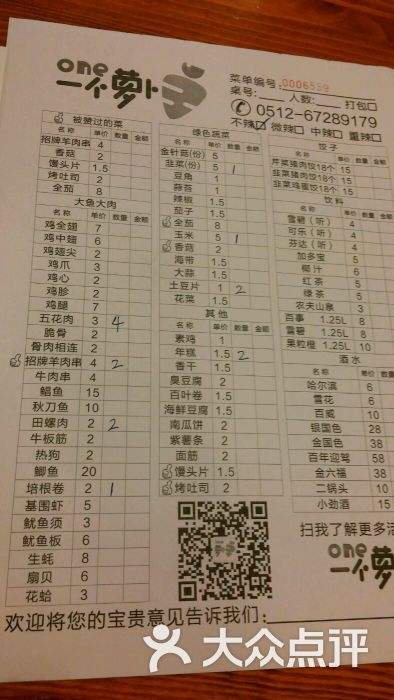 one
一个萝卜
菜单编号：0006559
桌号：____ 人数：____ 打包□
0512-67289179
不辣□ 微辣□ 中辣□ 重辣□
被赞过的菜
名称 单价 数量 金额
招牌羊肉串 4
香菇 2
馒头片 1.5
烤吐司 2
全茄 8
大鱼大肉
名称 单价 数量 金额
鸡全翅 7
鸡中翅 6
鸡翅尖 2
鸡爪 3
鸡心 2
鸡胗 2
鸡腿 7
五花肉 3 4
脆骨 2
骨肉相连 2
招牌羊肉串 4 2
牛肉串 4
鲳鱼 15
秋刀鱼 10
田螺肉 2 2
牛板筋 2
热狗 2
鲫鱼 20
培根卷 2 1
基围虾 5
鱿鱼须 3
鱿鱼板 6
生蚝 8
扇贝 6
花蛤 3
绿色蔬菜
名称 单价 数量 金额
金针菇(份) 5
韭菜(份) 5 1
豆角 1
蒜苔 1
辣椒 1.5
茄子 1.5
全茄 8
玉米 5 1
香菇 2
海带 1.5
大蒜 1.5
土豆片 1 2
花菜 1.5
其他
名称 单价 数量 金额
素鸡 1
年糕 1.5 2
香干 1.5
臭豆腐 2
百叶卷 1.5
海鲜豆腐 1.5
南瓜饼 2
紫薯条 2
面筋 2
馒头片 1.5
烤吐司 2
饺子
名称 单价 数量 金额
芹菜猪肉饺18个 15
韭菜猪肉饺18个 15
韭菜鸡蛋饺18个 15
饮料
名称 单价 数量 金额
雪碧（听） 4
可乐（听） 4
芬达（听） 4
加多宝 5
椰汁 6
红茶 5
绿茶 5
农夫山泉 3
百事 1.25L 8
雪碧 1.25L 8
果粒橙 1.25L 10
酒水
名称 单价 数量 金额
哈尔滨 6
雪花 6
百威 10
银国色 28
金国色 38
百年迎驾 58
金六福 38
二锅头 10
小劲酒 15
扫我了解更多活
one
一个萝
欢迎将您的宝贵意见告诉我们：
大众点评